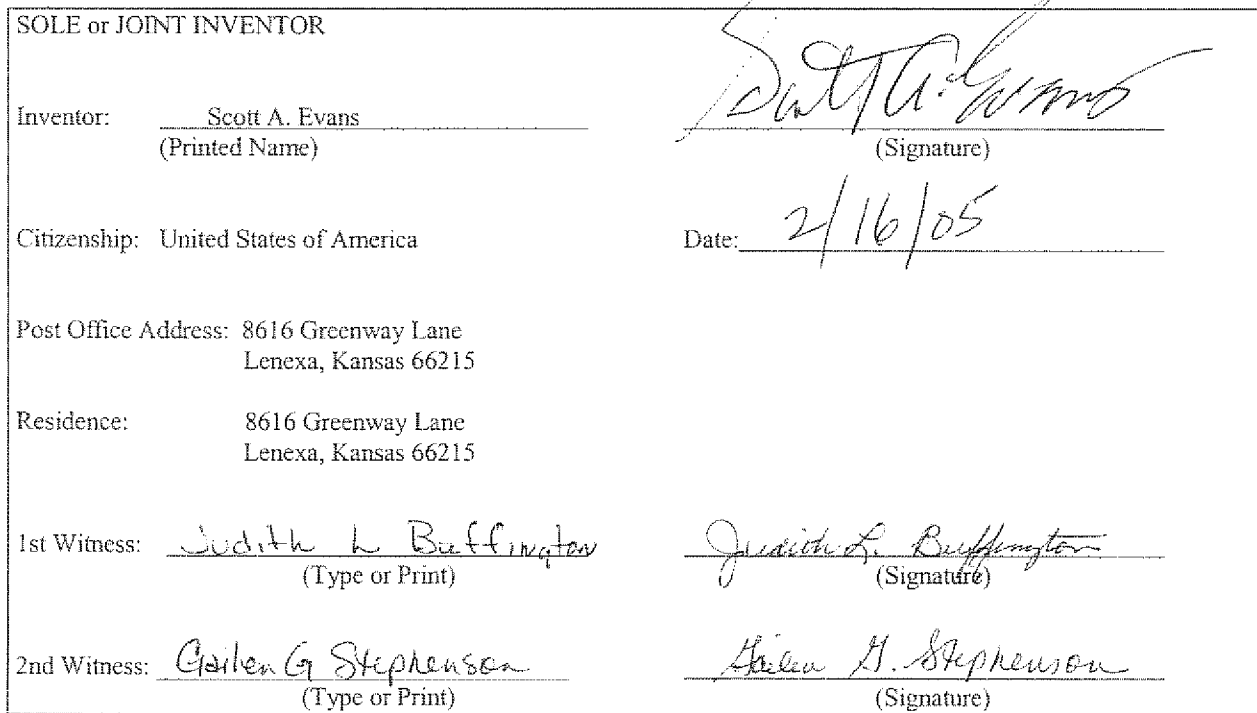 SOLE or JOINT INVENTOR
Inventor: Scott A. Evans Scott A. Evans
(Printed Name) (Signature)
Citizenship: United States of America Date: 2/16/05
Post Office Address: 8616 Greenway Lane
Lenexa, Kansas 66215
Residence: 8616 Greenway Lane
Lenexa, Kansas 66215
1st Witness: Judith L Buffington Judith L. Buffington
(Type or Print) (Signature)
2nd Witness: Gailen G Stephenson Gailen G. Stephenson
(Type or Print) (Signature)